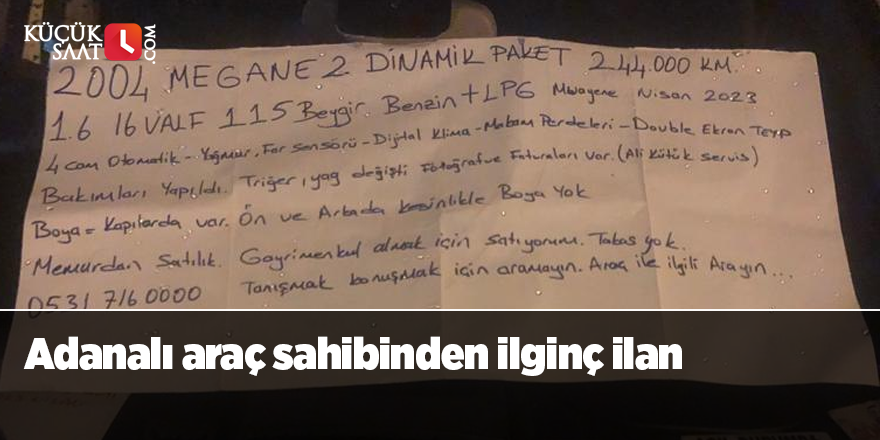 KÜÇÜK
SAAT
.COM
2004 MEGANE 2 DİNAMİK PAKET 244.000 KM.
1.6 16 VALF 115 Beygir. Benzin + LPG Muayene Nisan 2023
4 cam Otomatik - Yağmur, Far Sensörü - Dijital Klima - Makam Perdeleri - Double Ekran Teyp
Bakımları Yapıldı. Triger, yağ değişti Fotoğraf ve Faturaları Var. (Ali Kütük Servis)
Boya = Kapılarda var. Ön ve Arkada kesinlikle Boya Yok
Memurdan Satılık. Gayrimenkul almak için satıyorum. Takas yok.
0531 716 0000 Tanışmak konuşmak için aramayın. Araç ile ilgili Arayın...
Adanalı araç sahibinden ilginç ilan